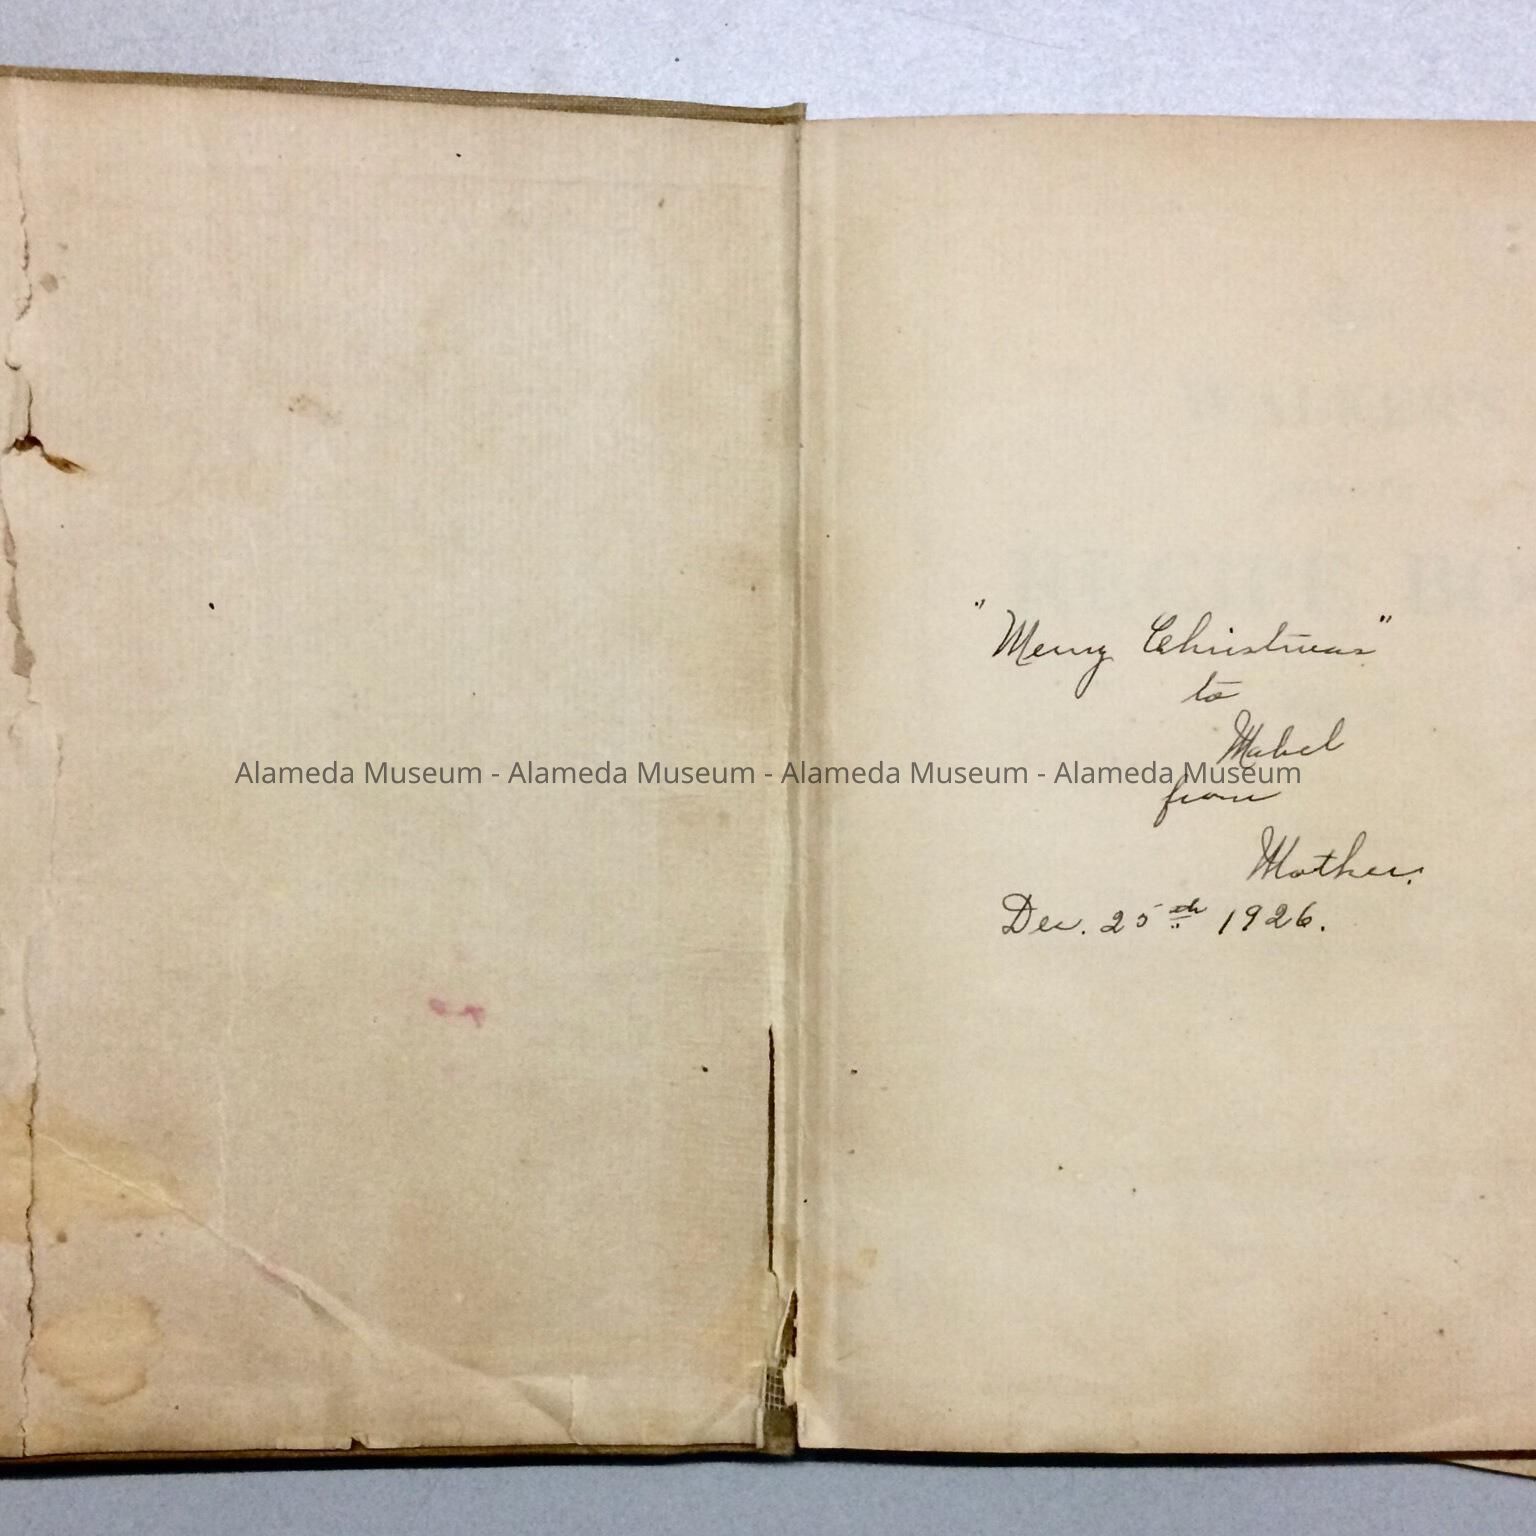 "Merry Christmas"
to
Mabel
Alameda Museum - Alameda Museum - Alameda Museum - Alameda Museum
from
Mother.
Dec. 25th 1926.